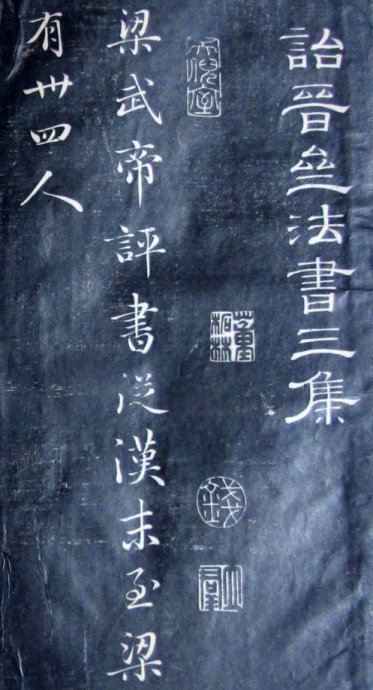 詒晉亝法書三集
錢
梁武帝評書從漢末至梁
有卅四人